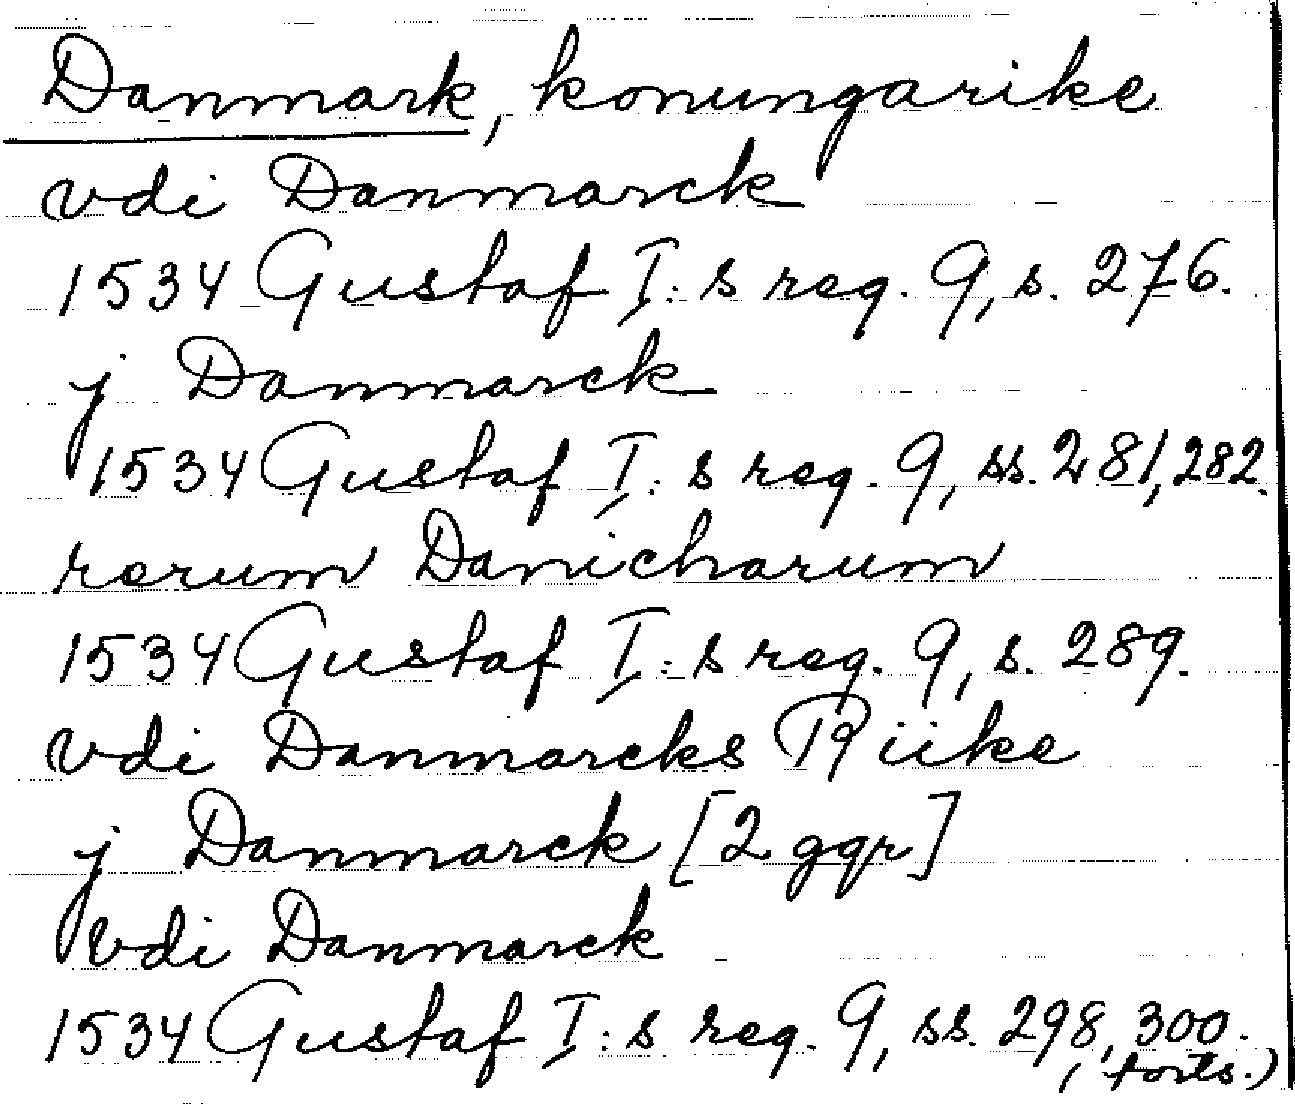 Danmark, konungarike
vdi Danmarck
1534 Gustaf I:s reg. 9, s. 276.
j Danmarck
1534 Gustaf I:s reg. 9, ss. 281, 282.
rerum Danicharum
1534 Gustaf I:s reg. 9, s. 289.
vdi Danmarcks Riike
j Danmarck [2 ggr]
vdi Danmarck
1534 Gustaf I:s reg. 9, ss. 298, 300.
(forts.)